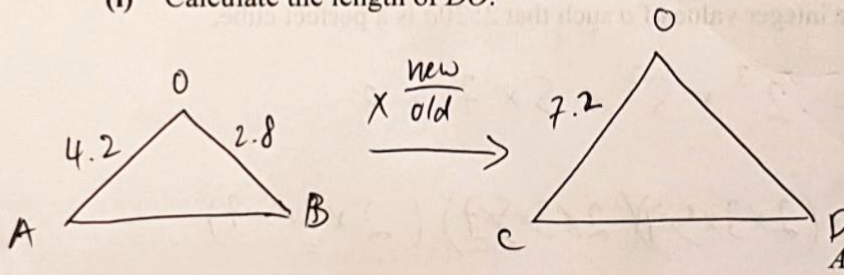 (i) Calculate the length of DO.
O
4.2
2.8
A
B
× new
old
O
7.2
C
D
A